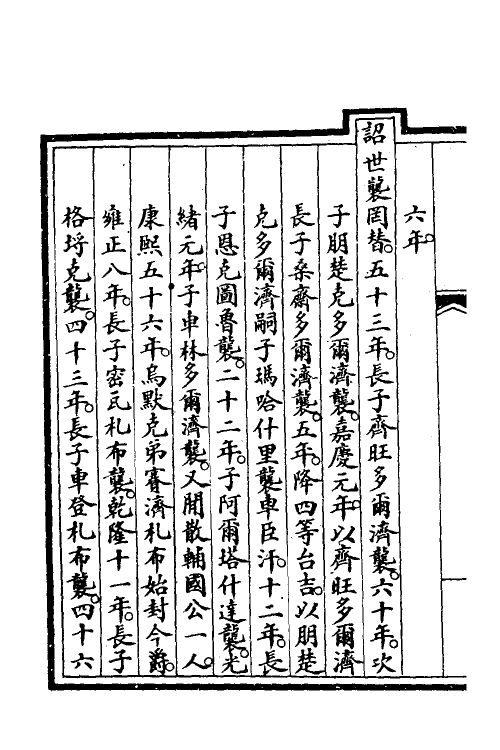 六年。
詔世襲罔替。五十三年。長子齊旺多爾濟襲。六十年。次
子朋楚克多爾濟襲。嘉慶元年。以齊旺多爾濟
長子桑齋多爾濟襲。五年。降四等台吉。以朋楚
克多爾濟嗣子瑪哈什里襲車臣汗。十二年。長
子恩克圖魯襲。二十二年。子阿爾塔什達襲。光
緒元年。子車林多爾濟襲。又閒散輔國公一人。
康熙五十六年。烏默克弟賽濟札布始封今爵。
雍正八年。長子密瓦札布襲。乾隆十一年。長子
格埒克襲。四十三年。長子車登札布襲。四十六